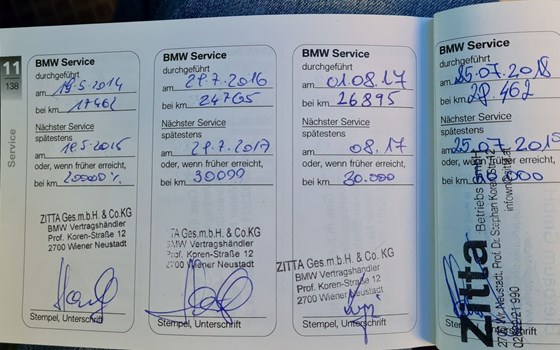 11
138
Service
BMW Service
durchgeführt
am 19.5.2014
bei km 17462
Nächster Service
spätestens
am 19.5.2015
oder, wenn früher erreicht,
bei km
ZITTA Ges.m.b.H. & Co.KG
BMW Vertragshändler
Prof. Koren-Straße 12
2700 Wiener Neustadt
Stempel, Unterschrift
BMW Service
durchgeführt
am 29.7.2016
bei km 24765
Nächster Service
spätestens
am 29.7.2017
oder, wenn früher erreicht,
bei km 30000
TA Ges.m.b.H. & Co.KG
BMW Vertragshändler
Prof. Koren-Straße 12
2700 Wiener Neustadt
Stempel, Unterschrift
BMW Service
durchgeführt
am 01.08.17
bei km 26895
Nächster Service
spätestens
am 08.17
oder, wenn früher erreicht,
bei km 30.000
ZITTA Ges.m.b.H. & Co.KG
BMW Vertragshändler
Prof. Koren-Straße 12
2700 Wiener Neustadt
Stempel, Unterschrift
BMW Service
durchgeführt
am 25.07.2018
bei km 28.462
Nächster Service
spätestens
am 25.07.201
oder, wenn früher erreicht,
bei km
Zitta
Betriebs GmbH
Stempel, Unterschrift